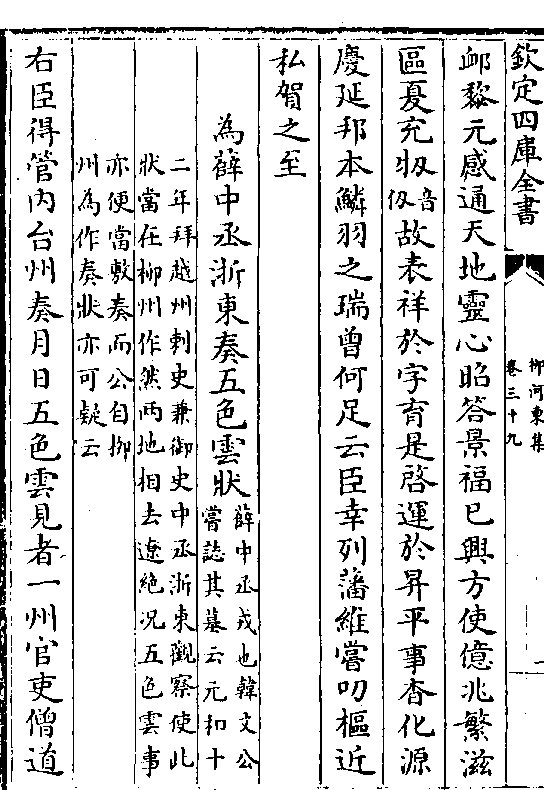 欽定四庫全書
柳河東集
卷三十九
卹黎元感通天地靈心昭答景福已興方使億兆繁滋
區夏充牣牣音仭故表祥於字育是啓運於昇平事杳化源
慶延邦本鱗羽之瑞曾何足云臣幸列藩維嘗叨樞近
私賀之至
為薛中丞浙東奏五色雲狀薛中丞戎也韓文公嘗誌其墓云元和十
二年拜越州刺史兼御史中丞浙東觀察使此
狀當在柳州作然兩地相去遼絶况五色雲事
亦便當敷奏而公自柳
州為作奏狀亦可疑云
右臣得管内台州奏月日五色雲見者一州官吏僧道